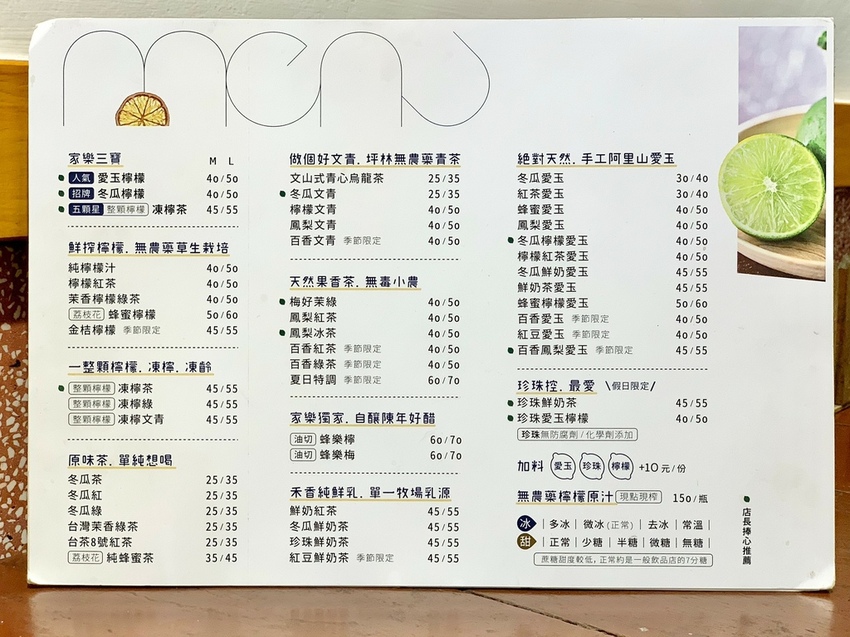 menu
家樂三寶 M L
人氣 愛玉檸檬 40/50
招牌 冬瓜檸檬 40/50
五顆星 整顆檸檬 凍檸茶 45/55
鮮搾檸檬.無農藥草生栽培
純檸檬汁 40/50
檸檬紅茶 40/50
茉香檸檬綠茶 40/50
荔枝花 蜂蜜檸檬 50/60
金桔檸檬 季節限定 45/55
一整顆檸檬.凍檸.凍齡
整顆檸檬 凍檸茶 45/55
整顆檸檬 凍檸綠 45/55
整顆檸檬 凍檸文青 45/55
原味茶.單純想喝
冬瓜茶 25/35
冬瓜紅 25/35
冬瓜綠 25/35
台灣茉香綠茶 25/35
台茶8號紅茶 25/35
荔枝花 純蜂蜜茶 35/45
做個好文青.坪林無農藥青茶
文山式青心烏龍茶 25/35
冬瓜文青 25/35
檸檬文青 40/50
鳳梨文青 40/50
百香文青 季節限定 40/50
天然果香茶.無毒小農
梅好茉綠 40/50
鳳梨紅茶 40/50
鳳梨冰茶 40/50
百香紅茶 季節限定 40/50
百香綠茶 季節限定 40/50
夏日特調 季節限定 60/70
家樂獨家.自釀陳年好醋
油切 蜂樂檸 60/70
油切 蜂樂梅 60/70
禾香純鮮乳.單一牧場乳源
鮮奶紅茶 45/55
冬瓜鮮奶茶 45/55
珍珠鮮奶茶 45/55
紅豆鮮奶茶 季節限定 45/55
絕對天然.手工阿里山愛玉
冬瓜愛玉 30/40
紅茶愛玉 30/40
蜂蜜愛玉 40/50
鳳梨愛玉 40/50
冬瓜檸檬愛玉 40/50
檸檬紅茶愛玉 40/50
冬瓜鮮奶愛玉 45/55
鮮奶茶愛玉 45/55
蜂蜜檸檬愛玉 50/60
百香愛玉 季節限定 40/50
紅豆愛玉 季節限定 40/50
百香鳳梨愛玉 季節限定 45/55
珍珠控.最愛 \假日限定/
珍珠鮮奶茶 45/55
珍珠愛玉檸檬 40/50
珍珠無防腐劑/化學劑添加
加料 愛玉 珍珠 檸檬 +10元/份
無農藥檸檬原汁 現點現榨 150/瓶
冰 | 多冰 | 微冰(正常) | 去冰 | 常溫 |
甜 | 正常 | 少糖 | 半糖 | 微糖 | 無糖 |
蔗糖甜度較低,正常約是一般飲品店的7分糖
店長捧心推薦